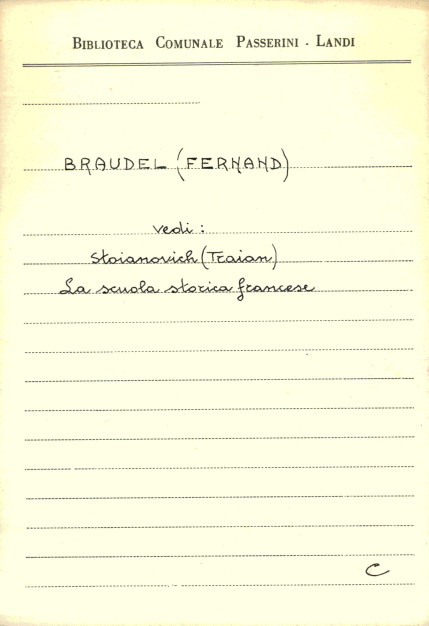 BIBLIOTECA COMUNALE PASSERINI - LANDI
BRAUDEL (FERNAND)
vedi:
Stoianovich (Traian)
La scuola storica francese
C